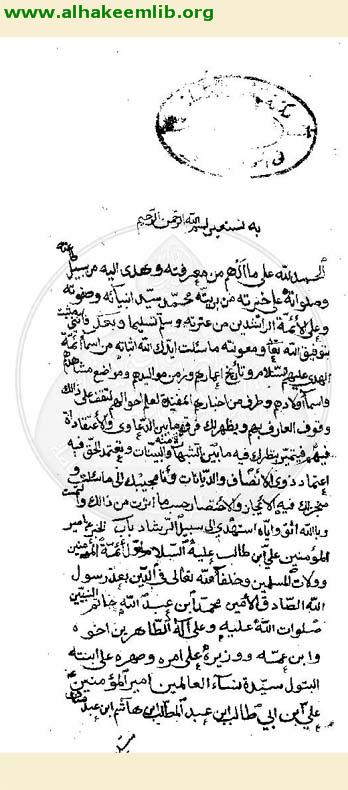 www.alhakeemlib.org
به نستعين بسم الله الرحمن الرحيم
الحمد لله على ما الهم من معرفته وهدى اليه من سبيل طاعته
وصلواته على خيرته من بريته محمد سيد انبيائه وصفوته
وعلى الائمة الراشدين من عترته وسلم تسليما وبعد فانى مثبت
بتوفيق الله تعالى ومعونته ما سئلت ايدك الله اثباته من اسماء ائمة
الهدى عليهم السلام وتاريخ اعمارهم وزمن مواليدهم ومواضع مشاهدهم
واسماء اولادهم وطرف من اخبارهم المفيدة لعلم احوالهم لتقف على ذلك
وقوف العارف بهم ويظهر لك فرق ما بين الدعاوى والاعتقادات
فيهم فتميز بنظرك فيه ما بين الشبهات والبينات وتعتمد الحق فيه
اعتماد ذوى الانصاف والديانات وانا مجيبك الى ما سئلت و
متحر لك فيه الايجاز والاختصار حسب ما اثرت من ذلك والتمست
وبالله اثق واياه استهدى الى سبيل الرشاد باب الخبر عن امير
المؤمنين على بن ابى طالب عليه السلام اول ائمة المؤمنين
وولات المسلمين وخلفاء الله تعالى فى الدين بعد رسول
الله الصادق الامين محمد ابن عبد الله خاتم النبيين
صلوات الله عليه وعلى آله الطاهرين اخوه
وابن عمه ووزيره على امره وصهره على ابنته
البتول سيدة نساء العالمين امير المؤمنين
على ابن ابي طالب ابن عبد المطلب ابن هاشم ابن عبد مناف